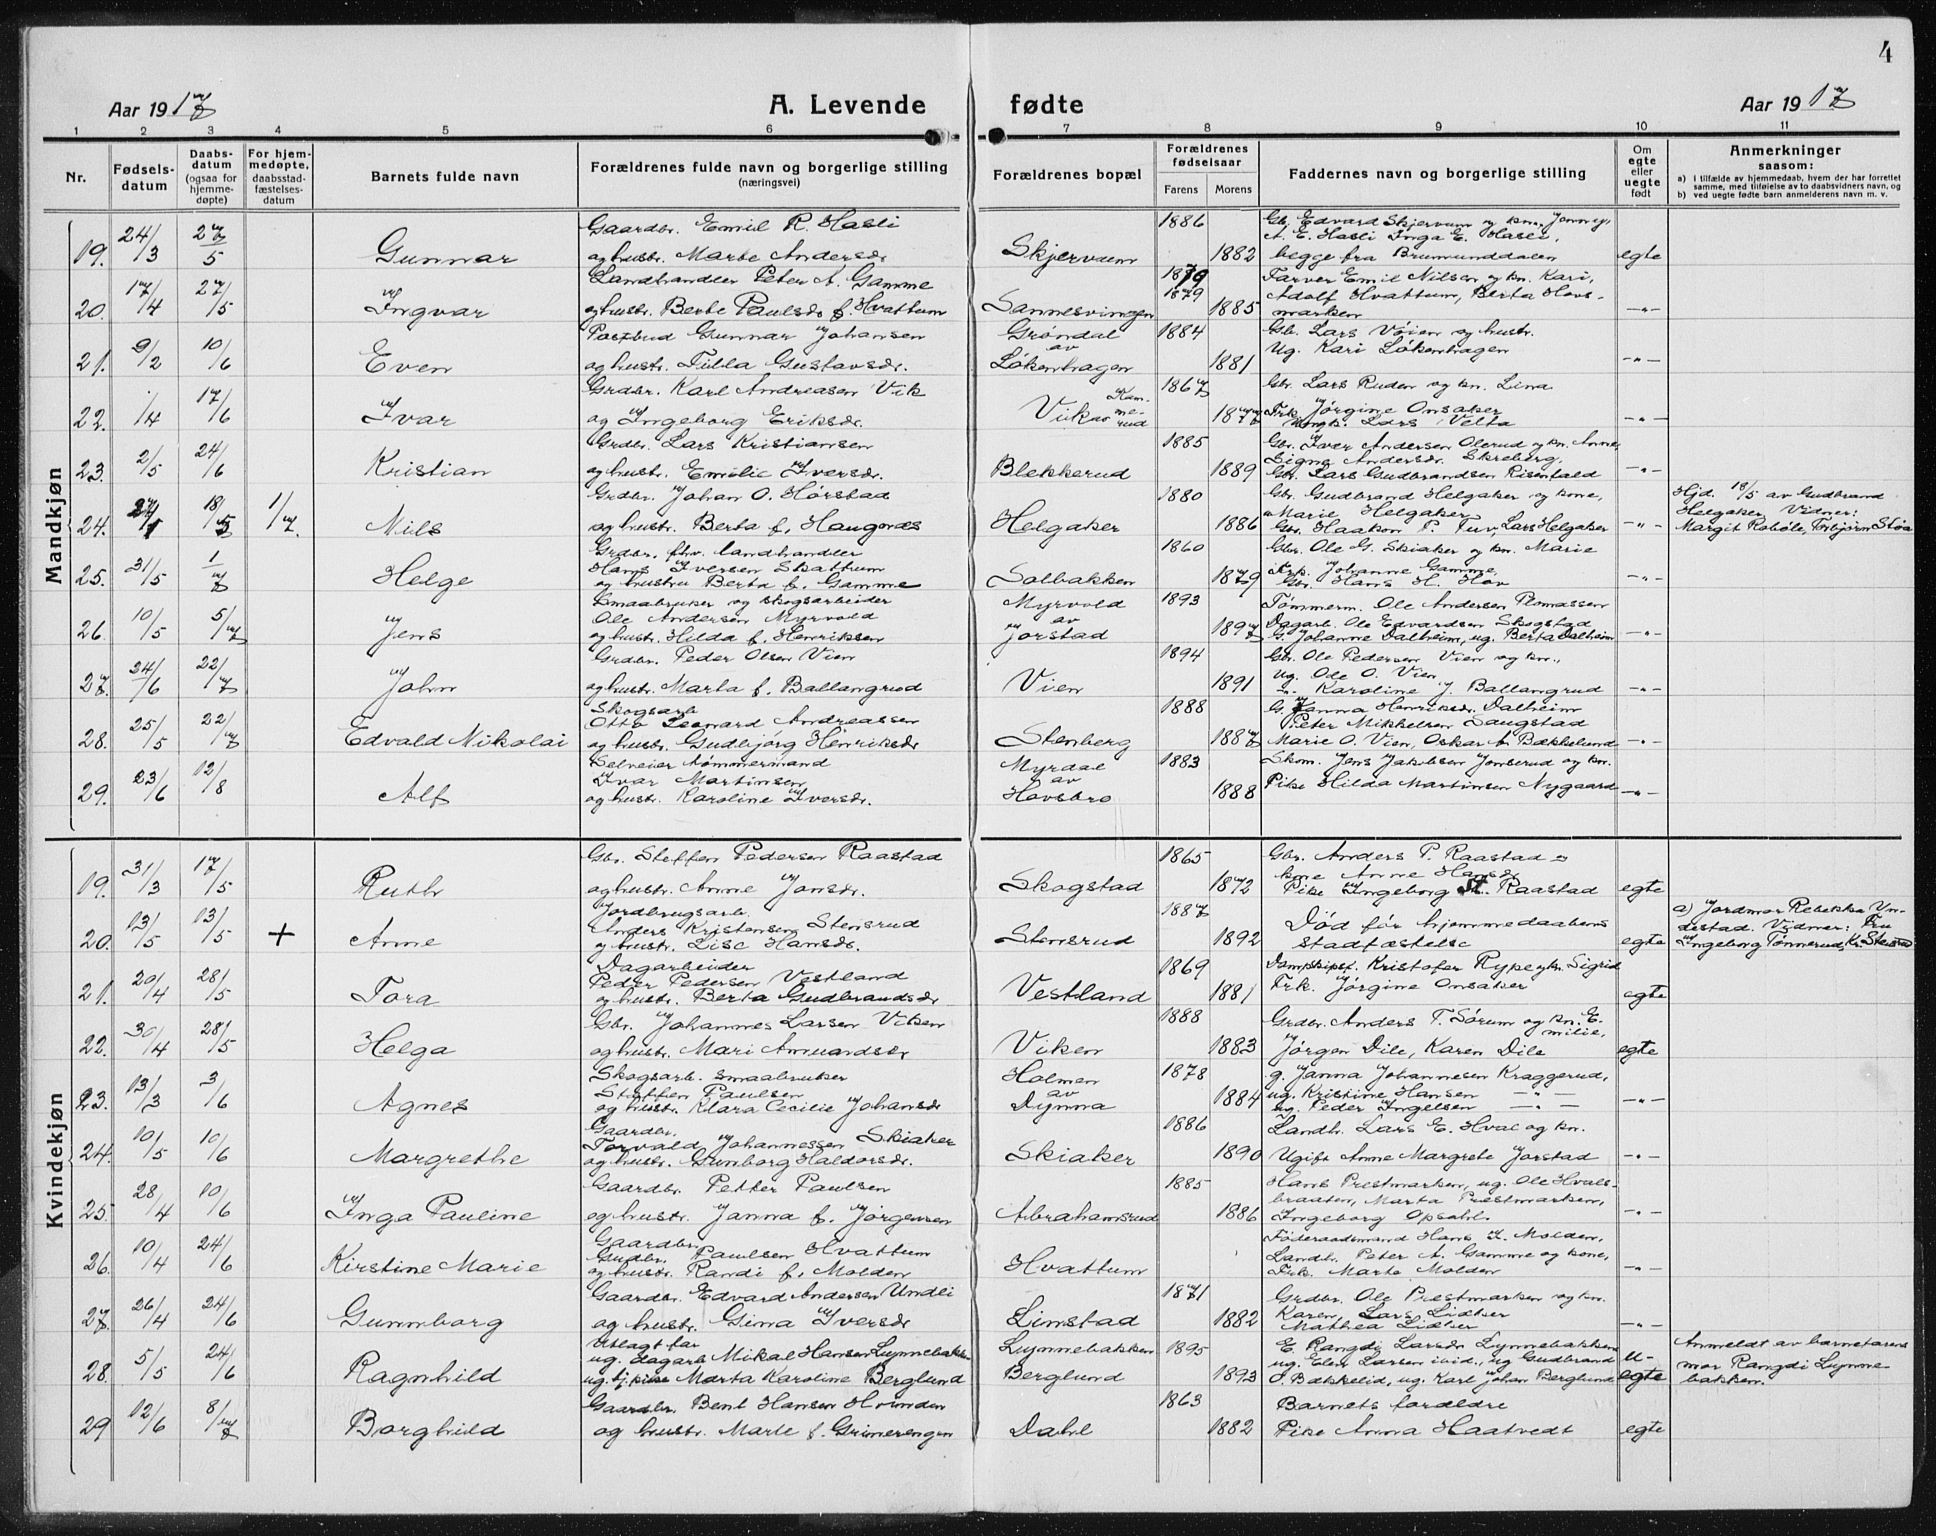 4
Aar 1917
A. Levende fødte
Aar 1917
1 2 3 4 5 6 7 8 9 10 11
Nr.
Fødsels-
datum
Daabs-
datum
(ogsaa for
hjemme-
døpte)
For hjem-
medøpte,
daabsstad-
fæstelses-
datum
Barnets fulde navn
Forældrenes fulde navn og borgerlige stilling
(næringsvei)
Forældrenes bopæl
Forældrenes
fødselsaar
Farens
Morens
Faddernes navn og borgerlige stilling
Om
egte
eller
uegte
født
Anmerkninger
saasom:
a) i tilfælde av hjemmedaab, hvem der har forrettet
samme, med tilføielse av to daabsvidners navn, og
b) ved uegte fødte barn anmelderens navn m. v.
Mandkjøn
19. 24/3 27/5 Gunnar
Gaardbr. Emil R. Hasli
og hustr. Marte Andersdr.
Skjervum 1886 1882
Gbr. Edvard Skjervum og kn. Jenny,
A. E. Hasli Inga E. Hasli,
begge fra Brumunddalen
egte
20. 17/4 27/5 Ingvar
Landhandler Peter A. Gamme
og hustr. Berte Paulsdr f. Hvattum
Sannesvingen 1879 1885
Farver Emil Nilsen og kn. Kari,
Adolf Hvattum, Berta Hovs-
marken
-"-
21. 9/2 10/6 Even
Postbud Gunnar Johansen
og hustr. Tilla Gustavsdr.
Grøndal
av
Løkenhagen 1884 1881
Gbr. Lars Vøien og hustr.
Ug. Kari Løkenhagen
-"-
22. 1/4 17/6 Ivar
Grdbr. Karl Andreasen Vik
og Ingeborg Eriksdr.
Vik 1867 1877
Gbr. Lars Ruden og kn. Lina
Frk. Jørgine Onsaker
Ungk. Lars Velta
-"-
23. 2/5 24/6 Kristian
Grdbr. Lars Kristiansen
og hustr. Emilie Iversdr.
Blekkerud 1885 1889
Gbr. Iver Andersen Olerud og kn. Anne,
Signe Andersdr. Skreberg,
Gbr. Lars Gudbrandsen Risenfald
-"-
24. 18/5 1/7. Nils
Grdbr. Johan O. Hørstad
og hustr. Berta f. Haugnæs
Helgaker 1880 1886
Gbr. Gudbrand Helgaker og kone,
Marie Helgaker
Gbr. Haakon P. Tuv, Lars Helgaker
-"-
Hjd. 18/5 av Gudbrand
Helgaker. Vidner:
Margit Robøle, Torbjørn Støa
25. 31/5 1/7 Helge
Grdbr. fhv. landhandler
Hans Iversen Skattum
og hustru Berta f. Gamme
Solbakken 1860 1879
Gbr. Ole G. Skiaker og kn. Marie
Frk. Johanne Gamme,
Gbr. Hans H. Hov
-"-
26. 10/5 5/7 Jens
Smaabruker og skogsarbeider
Ole Andersen Myrvold
og hustr. Hilda f. Henriksen
Myrvold
av
Jorstad 1893 1897
Tømmerm. Ole Andersen Plomassen
Dagarb. Ole Edvardsen Skogstad
G. Johanne Dalheim, ug. Berta Dalheim
-"-
27. 24/6 22/7 John
Grdbr. Peder Olsen Vien
og hustr. Marta f. Ballangrud
Vien 1894 1891
Gbr. Ole Pedersen Vien og kn.,
Ug. Ole O. Vien
-"- Karoline J. Ballangrud
-"-
28. 25/5 22/7 Edvald Nikolai
Skogsarb.
Otto Leonard Andreassen
og hustr. Gudbjørg Henriksdr
Stenberg 1888 1887
G. Janna Henriksdr. Dalheim
Peter Mikkelsen Laugstad
Marie O. Vien, Oskar A. Bækkelund
-"-
29. 23/6 12/8 Alf
Selveier tømmermand
Ivar Martinsen
og hustr. Karoline Iversdr.
Myrdal
av
Hovsbro 1883 1888
Skom. Jens Jakobsen Jonserud og kn.
Pike Hilda Martinsen Nygaard
-"-
Kvindekjøn
19. 31/3 17/5 Ruth
Gbr. Steffen Pedersen Raastad
og hustr. Anne Jonsdr.
Skogstad 1865 1872
Gbr. Anders P. Raastad og
kone Anne Hansdr
Pike Ingeborg St. Raastad
egte
20. 13/5 13/5 + Anne
Jordbrugsarb.
Anders Kristensen Stensrud
og hustr. Lise Hansdr.
Stensrud 1887 1892
Død før hjemmedaabens
stadfæstelse
egte
a) Jordmor Rebekka Un-
destad. Vidner: Fru
Ingeborg Tønnerud, K. Stensrud
21. 20/4 28/5 Tora
Dagarbeider
Peder Pedersen Vestland
og hustr. Berta Gudbrandsdr
Vestland 1869 1881
Dampskipsf. Kristofer Rype og kn. Sigrid
Frk. Jørgine Onsaker
egte
22. 30/4 28/5 Helga
Gbr. Johannes Larsen Viken
og hustr. Mari Amundsdr
Viken 1888 1883
Grdbr. Anders T. Sørum og kn. E-
milie,
Jørgen Dile, Karen Dile
egte
23. 13/3 3/6 Agnes
Skogsarb. smaabruker
Steffen Paulsen
og hustr. Klara Cecilie Johansdr
Holmen
av
Dynna 1878 1884
g. Janna Johannesen Kraggerud,
ug. Kristine Hansen -"-
ug. Peder Ingelsen -"-
-"-
24. 10/5 10/6 Margrethe
Gaardbr.
Torvald Johannessen Skiaker
og hustr. Gunborg Haldorsdr.
Skiaker 1886 1890
Landh. Lars E. Hval og kn.
Ugift Anne Margrete Jorstad
-"-
25. 28/4 10/6 Inga Pauline
Gaardbr. Petter Paulsen
og hustr. Janna f. Jørgensen
Abrahamsrud 1885 1886
Hans Prestmarken, ug. Ole Hvals-
braaten, Marta Prestmarken,
Ingeborg Opsahl.
-"-
26. 10/4 24/6 Kirstine Marie
Gaardbr.
Gudbr. Paulsen Hvattum
og hustr. Randi f. Molden
Hvattum
Føderaadsmand Hans I. Molden,
Landh. Peter A. Gamme og kone,
Frk. Marte Molden
-"-
27. 26/4 24/6 Gunnborg
Gaardbr. Edvard Andersen Undli
og hustr. Gina Iversdr
Limstad 1871 1882
Grdbr. Ole Prestmarken og kn.
Karen, Lars Lidtser
Mathea Lidtser
-"-
28. 5/5 24/6 Ragnhild
Utlagt far
ug. dagarb. Mikal Hansen Lynnebakken
ug. tj. pike Marta Karoline Berglund
Lynnebakken
Berglund 1895 1893
E. Rangdi Larsdr Lynnebakken
ug. Elen Larsen ibid., ug Gudbrand
S. Bækkelid, ug. Karl Johan Berglund
u-
egte
Anmeldt av barnefarens
mor Rangdi Lynne-
bakken.
29 12/6 8/7 Borghild
Gaardbr. Bent Hansen Hvinden
og hustr. Marte f. Grimerengen
Dahl 1863 1882
Barnets forældre
Pike Anna Haatvedt
egte